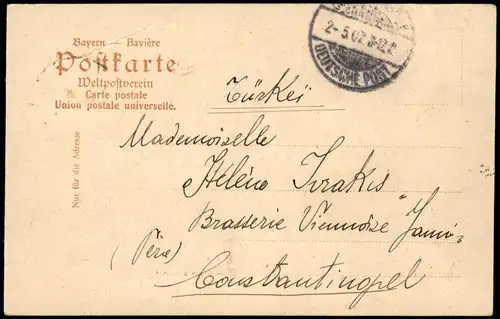 Bayern – Bavière
Postkarte
Weltpostverein
Carte postale
Union postale universelle.
Nur für die Adresse
2-5.07. 8-12.V.
DEUTSCHE POST
Türkëi
Mademoiselle
Hélène Ivrakis
Brasserie Viennoise "Janni"
(Péra)
Constantinopel